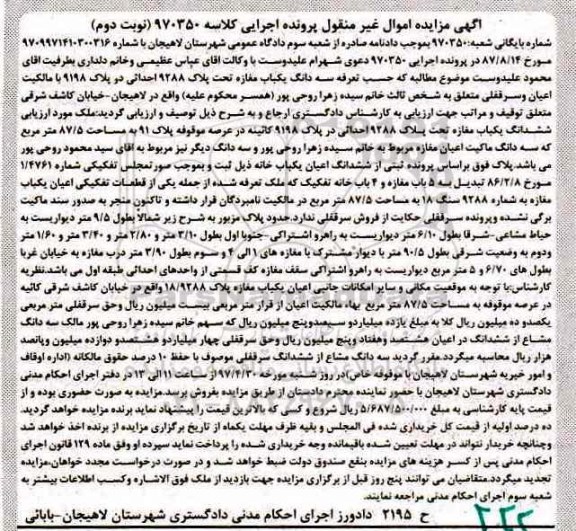 آگهی مزایده اموال غیر منقول پرونده اجرایی کلاسه ۹۷۰۳۵۰ (نوبت دوم)
شماره بایگانی شعبه:۹۷۰۳۵۰ بموجب دادنامه صادره از شعبه سوم دادگاه عمومی شهرستان لاهیجان با شماره ۹۷۰۹۹۷۱۴۱۰۳۰۰۳۱۶
مورخ ۸۷/۸/۱۴ در پرونده اجرایی ۹۷۰۳۵۰ دعوی شهرام علیدوست با وکالت اقای عباس عظیمی وخانم دلداری بطرفیت اقای
محمود علیدوست موضوع مطالبه که حسب تعرفه سه دانگ یکباب مغازه تحت پلاک ۹۲۸۸ احداثی در پلاک ۹۱۹۸ با مالکیت
اعیان وسرقفلی متعلق به شخص ثالث خانم سیده زهرا روحی پور (همسر محکوم علیه) واقع در لاهیجان-خیابان کاشف شرقی
متعلق توقیف و مراتب جهت ارزیابی به کارشناس دادگستری ارجاع و به شرح ذیل توصیف و ارزیابی گردید:ملک مورد ارزیابی
ششدانگ یکباب مغازه تحت پلاک ۹۲۸۸ احداثی در پلاک ۹۱۹۸ کائینه در عرصه موقوفه پلاک ۹۱ به مساحت ۸۷/۵ متر مربع
که سه دانگ مالکیت اعیان مغازه مربوط به خانم سیده زهرا روحی پور و سه دانگ دیگر نیز مربوط به اقای سید محمود روحی پور
می باشد.پلاک فوق براساس پرونده ثبتی از ششدانگ اعیان یکباب خانه ذیل ثبت و بموجب صورتمجلس تفکیکی شماره ۱/۴۷۶۱
مورخ ۸۶/۲/۸ تبدیل به ۵ باب مغازه و ۴ باب خانه تفکیک که ملک تعرفه شده از جمله یکی از قطعات تفکیکی اعیان یکباب
مغازه به شماره ۹۲۸۸ سنگ ۱۸ به مساحت ۸۷/۵ متر مربع در مالکیت نامبردگان قرار داشته و تاکنون منجر به صدور سند مالکیت
برگی نشده وپرونده سرقفلی حکایت از فروش سرقفلی ندارد.حدود پلاک مزبور به شرح زیر شمالا بطول ۹/۵ متر دیواریست به
حیاط مشاعی-شرقا بطول ۶/۱۰ متر دیواریست به راهرو اشتراکی-جنوبا اول بطول ۳/۱۰ متر و ۲/۸۰ متر و ۳/۴۰ متر و ۱/۶۰ متر
ودوم به وضعیت شرقی بطول ۹۰/۵ متر با دیوار مشترک با مغازه های ۱ الی ۴ و سوم بطول ۳/۹۰ متر درب مغازه به خیابان غربا
بطول های ۶/۷۰ و ۵ متر مربع دیواریست به راهرو اشتراکی سقف مغازه کف قسمتی از واحدهای احداثی طبقه اول می باشد.نظریه
کارشناس:با توجه به موقعیت مکانی و سایر امکانات جانبی اعیان یکباب مغازه پلاک ۱۸/۹۲۸۸ واقع در خیابان کاشف شرقی کائیه
در عرصه موقوفه به مساحت ۸۷/۵ متر مربع بهاء مالکیت اعیان از قرار متر مربعی بیست میلیون ریال وحق سرقفلی متر مربعی
یکصدو ده میلیون ریال کلا به مبلغ یازده میلیاردو سیصدوپنج میلیون ریال که سهم خانم سیده زهرا روحی پور مالک سه دانگ
مشاع از ششدانگ در اعیان هشتصد وهفتاد وپنج میلیون ریال وحق سرقفلی چهار میلیاردو هشتصدو دوازده میلیون وپانصد
هزار ریال محاسبه میگردد.مقرر گردید سه دانگ مشاع از ششدانگ سرقفلی موصوف با حفظ ۱۰ درصد حقوق مالکانه (اداره اوقاف
و امور خیریه شهرستان لاهیجان یا موقوفه خاص)در روز شنبه مورخه ۹۷/۴/۳۰ از ساعت ۱۱ الی ۱۲ در دفتر اجرای احکام مدنی
دادگستری شهرستان لاهیجان با حضور نماینده محترم دادستان از طریق مزایده بفروش برسد.مزایده به صورت حضوری بوده و از
قیمت پایه کارشناسی به مبلغ ۵/۶۸۷/۵۰۰/۰۰۰ ریال شروع و کسی که بالاترین قیمت را پیشنهاد نماید برنده مزایده خواهد گردید.
ده درصد اولیه از قیمت کل خریداری شده فی المجلس و بقیه ظرف مهلت یکماه از تاریخ برگزاری مزایده از برنده اخذ خواهد شد
وچنانچه خریدار نتواند در مهلت تعیین شده باقیمانده وجه خریداری شده را پرداخت نماید سپرده او وفق ماده ۱۲۹ قانون اجرای
احکام مدنی پس از کسر هزینه های مزایده بنفع صندوق دولت ضبط خواهد شد و در صورت درخواست مجدد خواهان،مزایده
تجدید میگردد.متقاضیان می توانند پنج روز قبل از برگزاری مزایده جهت بازدید از ملک فوق الاشاره وکسب اطلاعات بیشتر به
شعبه سوم اجرای احکام مدنی مراجعه نمایند.
ح ۲۱۹۵ دادورز اجرای احکام مدنی دادگستری شهرستان لاهیجان-بابائی